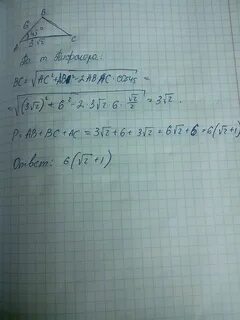 B
6
45°
A 3√2 C
По т. Пифагора:
BC = √AC² + AB² - 2AB·AC·cos45 =
= √(3√2)² + 6² - 2·3√2·6·√2/2 = 3√2.
P = AB + BC + AC = 3√2 + 6 + 3√2 = 6√2 + 6 = 6(√2+1)
Ответ: 6(√2+1)